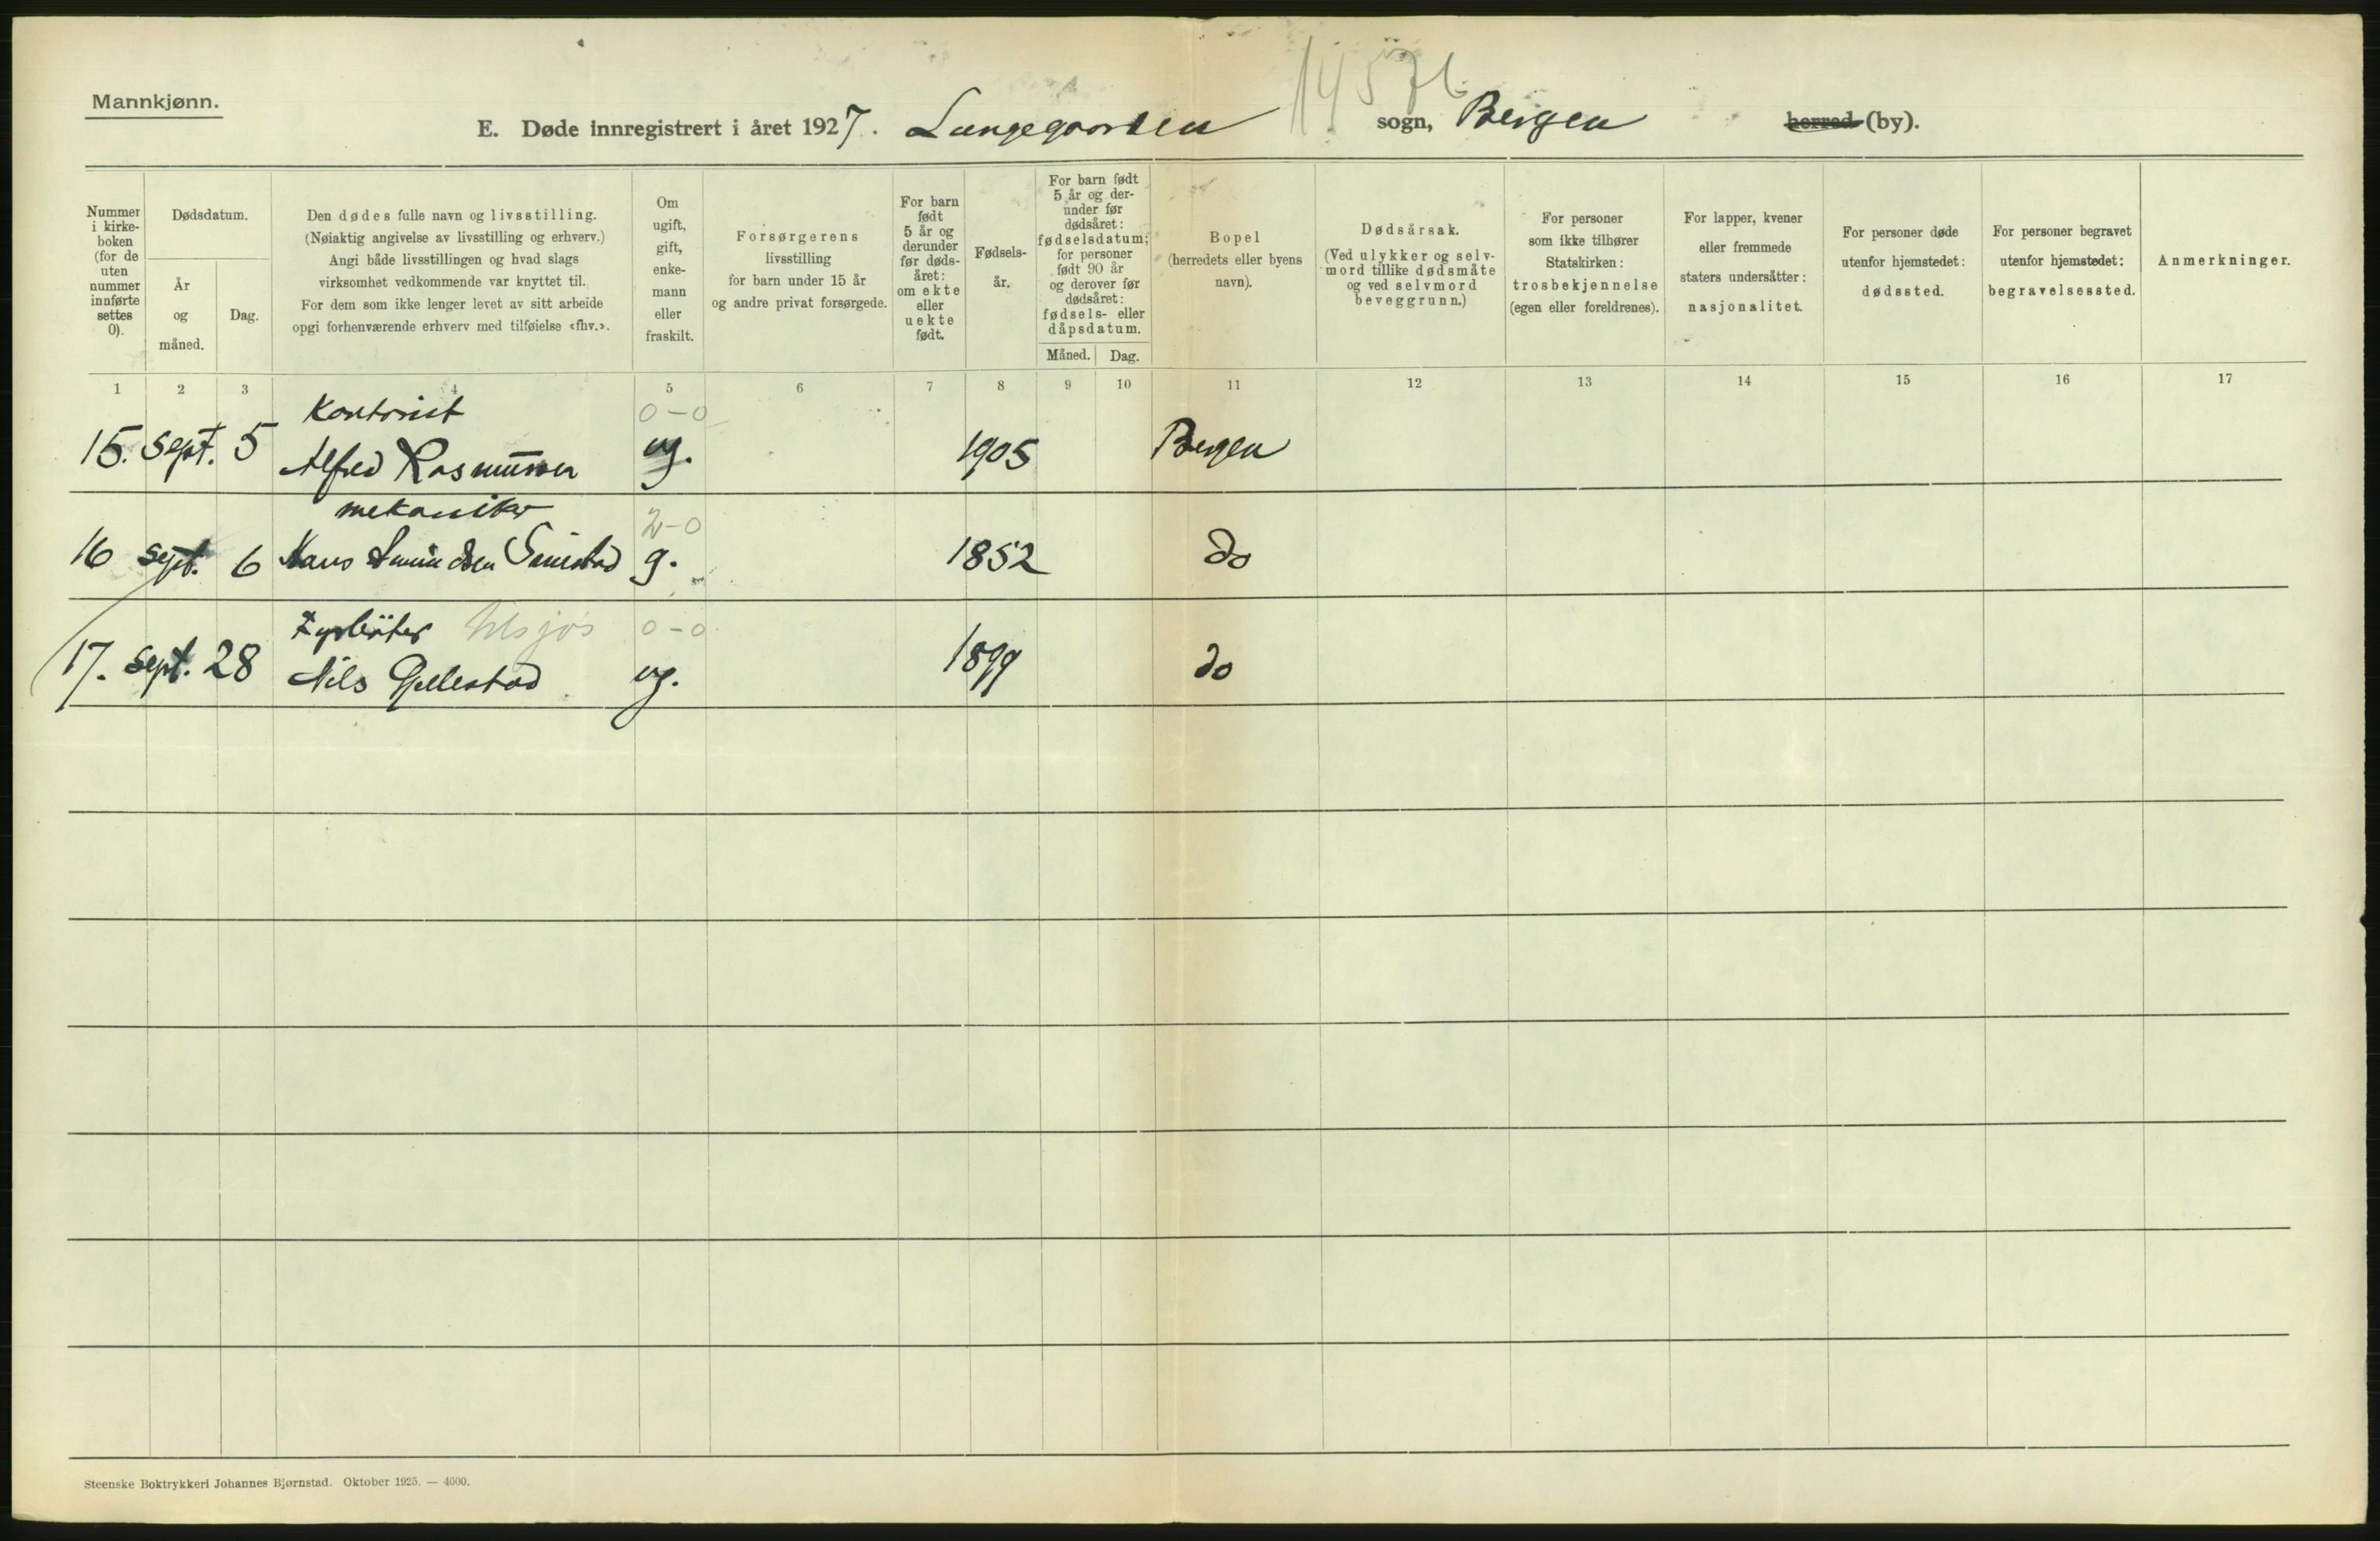 Mannkjønn.
E. Døde innregistrert i året 1927. Lungegaarden sogn, Bergen herred (by).
Nummer i kirke-boken (for de uten nummer innførte settes 0).
Dødsdatum.
År og måned.
Dag.
Den dødes fulle navn og livsstilling.
(Nøiaktig angivelse av livsstilling og erhverv.)
Angi både livsstillingen og hvad slags
virksomhet vedkommende var knyttet til.
For dem som ikke lenger levet av sitt arbeide
opgi forhenværende erhverv med tilføielse «fhv.».
Om ugift, gift, enke-mann eller fraskilt.
Forsørgerens
livsstilling
for barn under 15 år
og andre privat forsørgede.
For barn født 5 år og derunder før døds-året: om ekte eller uekte født.
Fødsels-år.
For barn født 5 år og der-under før dødsåret: fødselsdatum; for personer født 90 år og derover før dødsåret: fødsels- eller dåpsdatum.
Måned.
Dag.
Bopel
(herredets eller byens navn).
Dødsårsak.
(Ved ulykker og selv-mord tillike dødsmåte og ved selvmord beveggrunn.)
For personer som ikke tilhører Statskirken: trosbekjennelse (egen eller foreldrenes).
For lapper, kvener eller fremmede staters undersåtter: nasjonalitet.
For personer døde utenfor hjemstedet: dødssted.
For personer begravet utenfor hjemstedet: begravelsessted.
Anmerkninger.
1 2 3 4 5 6 7 8 9 10 11 12 13 14 15 16 17
Kontorist 0-0
15. Sept. 5 Alfred Rasmussen ug. 1905 Bergen
mekaniker 2-0
16 Sept. 6 Hans Amundsen g. 1852 do
Fyrbøter 0-0
17. Sept. 28 Nils Gjellestad ug. 1899 do
Steenske Boktrykkeri Johannes Bjørnstad. Oktober 1925. — 4000.